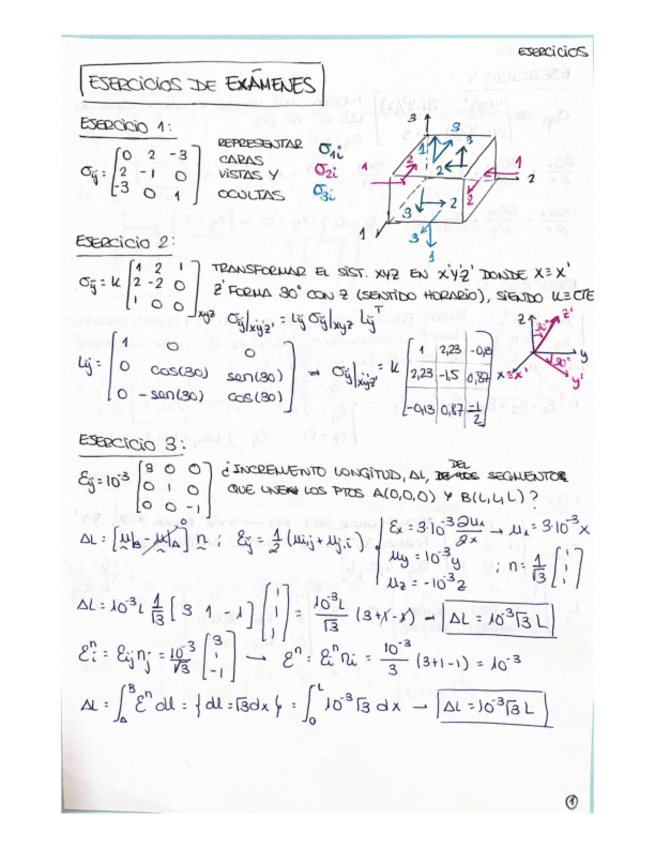 EJERCICIOS
EJERCICIOS DE EXÁMENES
EJERCICIO 1:
σij = [0 2 -3; 2 -1 0; -3 0 1] REPRESENTAR CARAS VISTAS Y OCULTAS σ1i σ2i σ3i
3 3 3 1 2 1 1 2 2 3 2 3 1 1
EJERCICIO 2:
σij = K [1 2 1; 2 -2 0; 1 0 0]xyz TRANSFORMAR EL SIST. XYZ EN X'Y'Z' DONDE X≡X'
Z' FORMA 30° CON Z (SENTIDO HORARIO), SIENDO K≡CTE
σij|x'y'z' = Lij σij|xyz LijT
Lij = [1 0 0; 0 cos(30) sen(30); 0 -sen(30) cos(30)] → σij|x'y'z' = K [1 2,23 -0,13; 2,23 -1,5 0,87; -0,13 0,87 -1/2]
z z' 30° y x≡x' 30° y'
EJERCICIO 3:
Eij = 10-3 [3 0 0; 0 1 0; 0 0 -1] ¿INCREMENTO LONGITUD, ΔL, DEL SEGMENTO
QUE UNE LOS PTOS A(0,0,0) Y B(L,L,L)?
ΔL = [u|B - u|A] n ; Eij = 1/2 (ui,j + uj,i) { Ex = 3·10-3 ∂ux/∂x → ux = 3·10-3 x
uy = 10-3 y
uz = -10-3 z ; n = 1/√3 [1 1 1]
ΔL = 10-3 L 1/√3 [3 1 -1] [1 1 1] = 10-3 L/√3 (3+1-1) → ΔL = 10-3 √3 L
Ein = Eij nj = 10-3/√3 [3 1 -1] → En = Ein ni = 10-3/3 (3+1-1) = 10-3
ΔL = ∫AB En dl = {dl = √3 dx} = ∫0L 10-3 √3 dx → ΔL = 10-3 √3 L
1